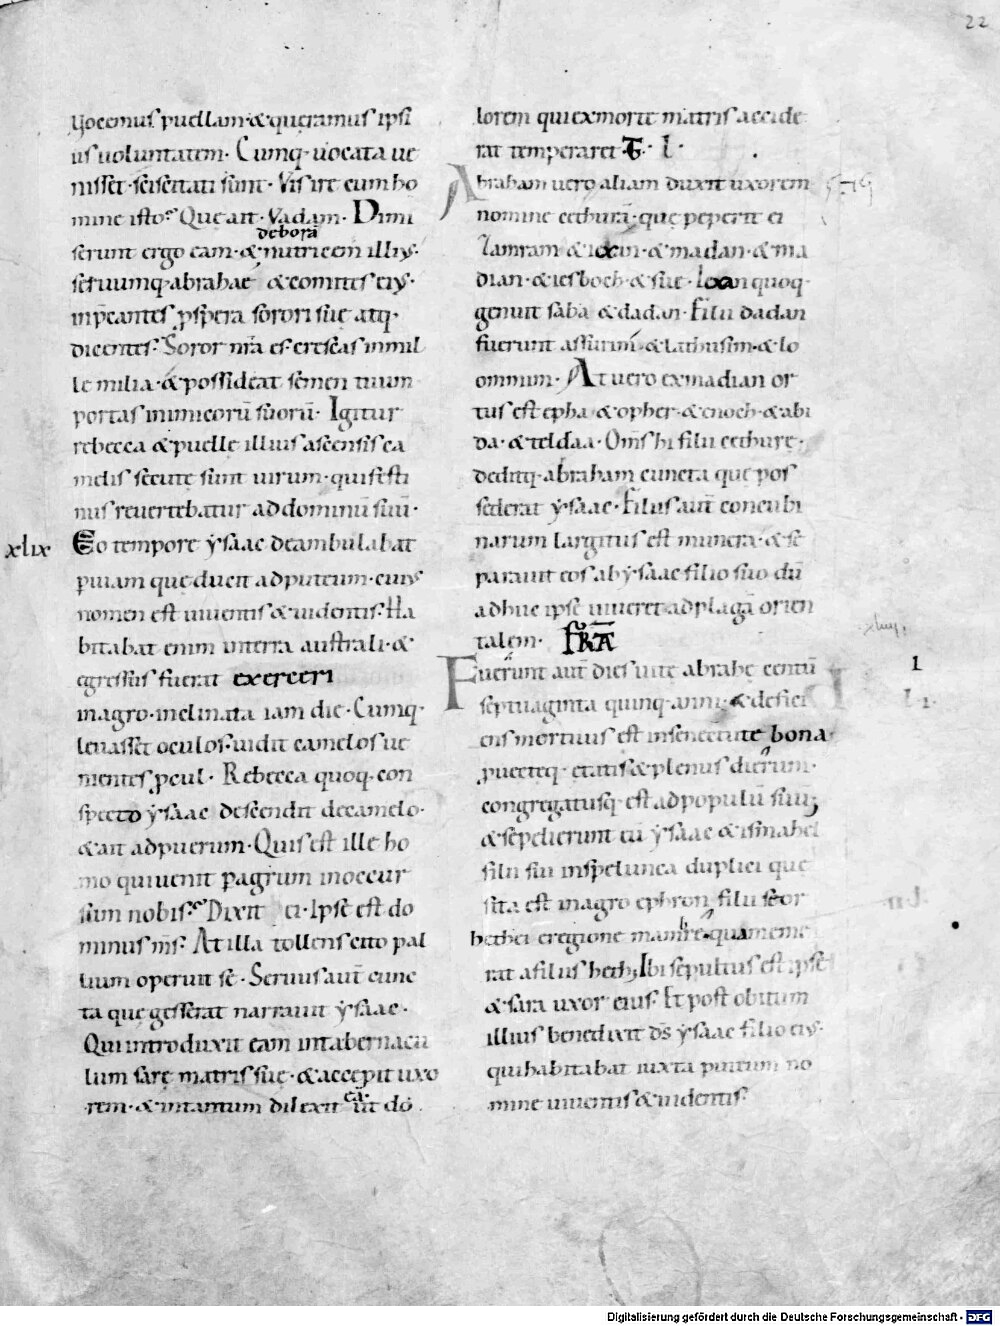 22
Vocemus puellam & queramus ipsi
us uoluntatem· Cumq· uocata ue
nisset· sciscitati sunt· Vis ire cum ho
mine isto? Que ait· Vadam· Dimi
deborā
serunt ergo eam· & nutricem illius·
seruumq· abrahae & comites eius·
inp̄cantes ꝓspera sorori sue atq·
dicentes· Soror nr̄a es· crescas in mil
le milia· & possideat semen tuum
portas inimicorū suorū· Igitur
rebecca & puelle illius ascensis ca
melis secute sunt uirum· qui festi
nus reuertebatur ad dominū suū·
xlix
Eo tempore ysaac deambulabat
ꝑ uiam que ducit ad puteum· cuius
nomen est uiuentis & uidentis· Ha
bitabat enim in terra australi· &
egressus fuerat exerceri
in agro· inclinata iam die· Cumq·
leuasset oculos· uidit camelos ue
nientes ꝓcul· Rebecca quoq· con
specto ysaac descendit de camelo·
& ait ad puerum· Quis est ille ho
mo qui uenit ꝑ agrum in occur
sum nobis? Dixit ei· Ipse est do
minus ms̄· At illa tollens cito pal
lium operuit se· Seruus aut̄ cunc
ta que gesserat narrauit ysaac·
Qui introduxit eam in tabernacu
lum sare matris sue· & accepit uxo
eā·
rem· & in tantum dilexit ut do
lorem qui ex morte matris accide
rat temperaret· L·
Abraham uero aliam duxit uxorem
nomine cethurā· que peperit ei
Zamram & iexan· & madan· & ma
dian· & iesboch· & sue· Iexan quoq·
genuit saba & dadan· Filii dadan
fuerunt assurim· & lathusim· & lo
ommim· At uero ex madian or
tus est epha· & opher· & enoch· & abi
da· & teldaa· Om̄s hi filii cethure·
deditq· abraham cuncta que pos
sederat ysaac· Filiis aut̄ concubi
narum largitus est munera· & se
parauit eos ab ysaac filio suo dū
adhuc ipse uiueret· ad plagā orien
talem·
L
Fuerunt aut̄ dies uite abrahe centū
septuaginta quinq· anni· & defici
ens mortuus est in senectute bona·
ꝓuecteq· etatis & plenus dierum·
congregatusq· est ad populū suū;
& sepelierunt eū ysaac & ismahel
filii sui in spelunca duplici que
sita est in agro ephron filii seor
hethei e regione mambre· quam eme
rat a filiis heth; Ibi sepultus est ipse
& sara uxor eius· Et post obitum
illius benedixit ds̄ ysaac filio eius·
qui habitabat iuxta puteum no
mine uiuentis & uidentis·
Digitalisierung gefördert durch die Deutsche Forschungsgemeinschaft - DFG